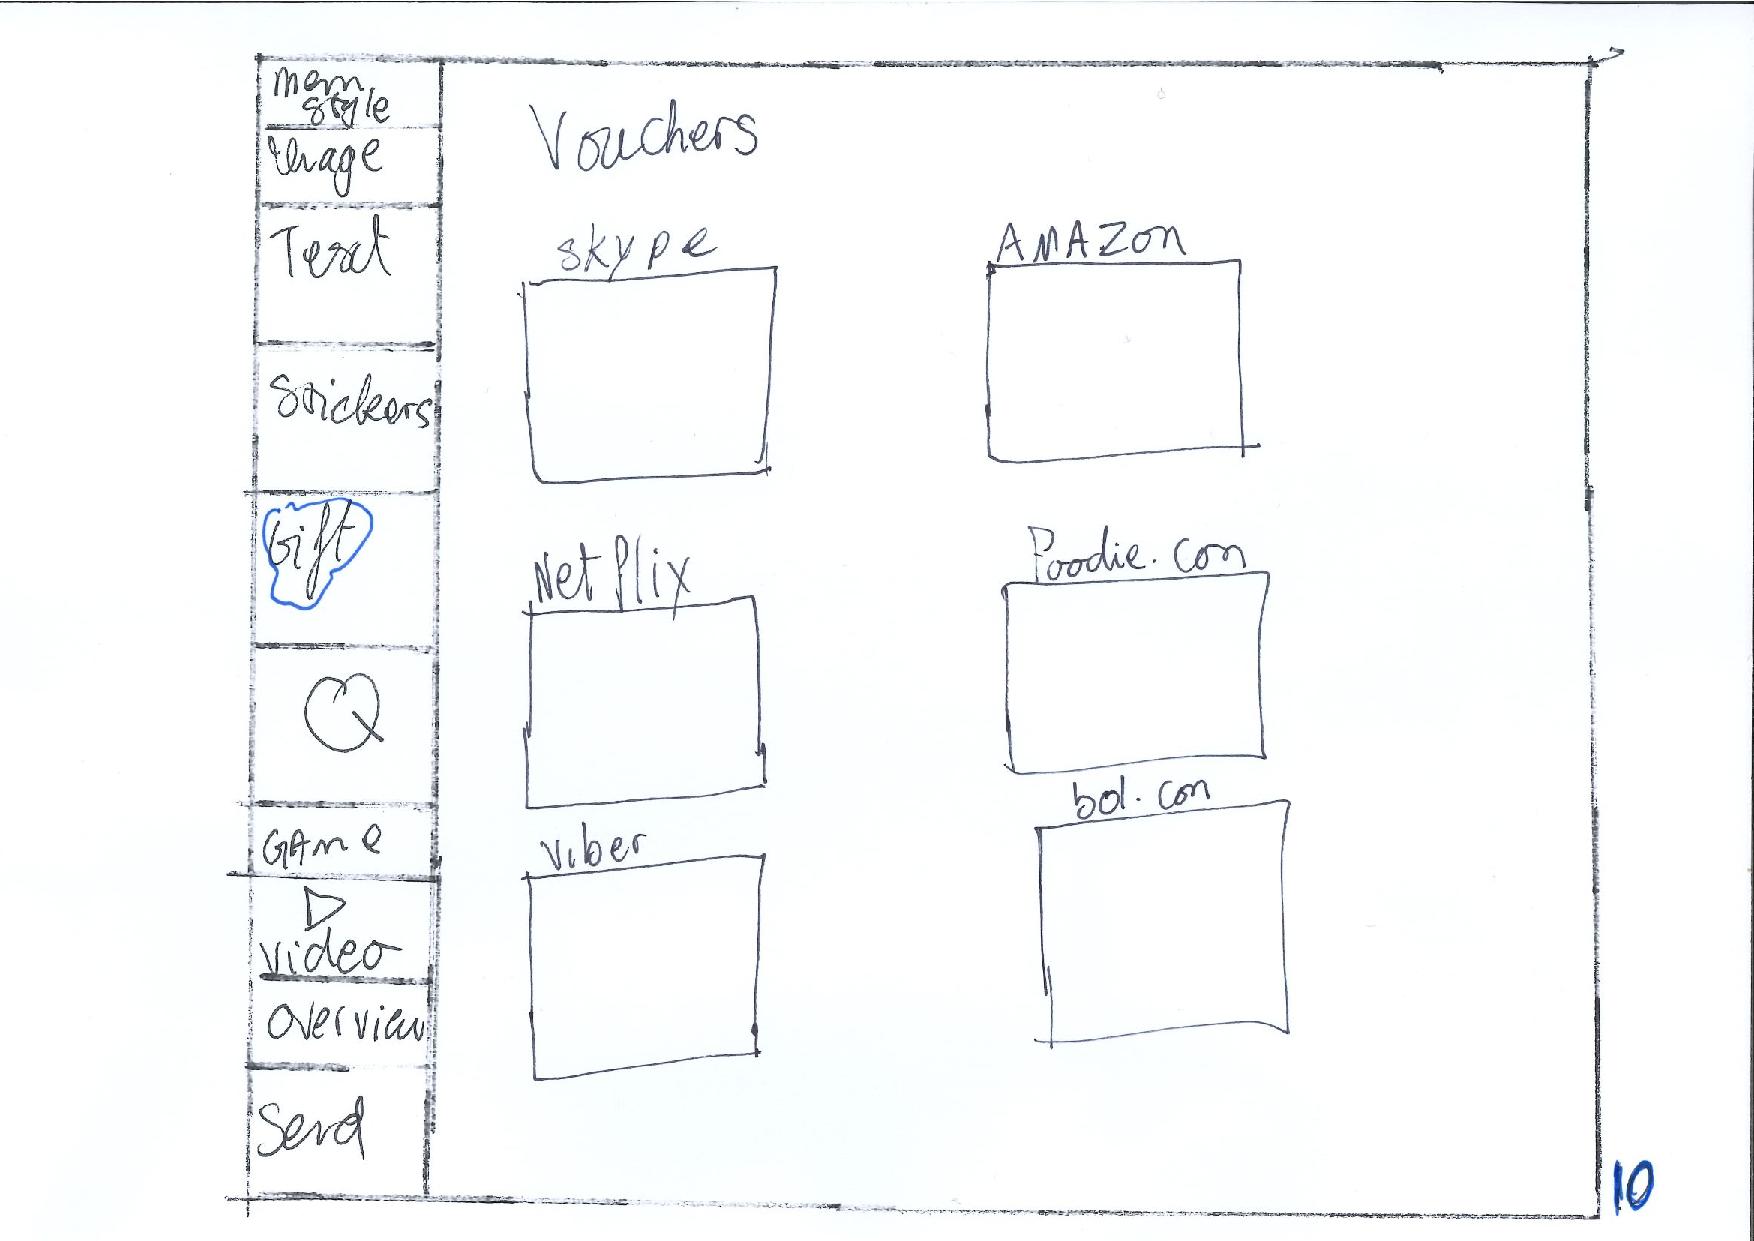 Mem
style
Image
Text
Stickers
Gift
GAme
video
Overview
Send
Vouchers
skype
AMAZon
Netflix
Foodie.com
viber
bol.com
10